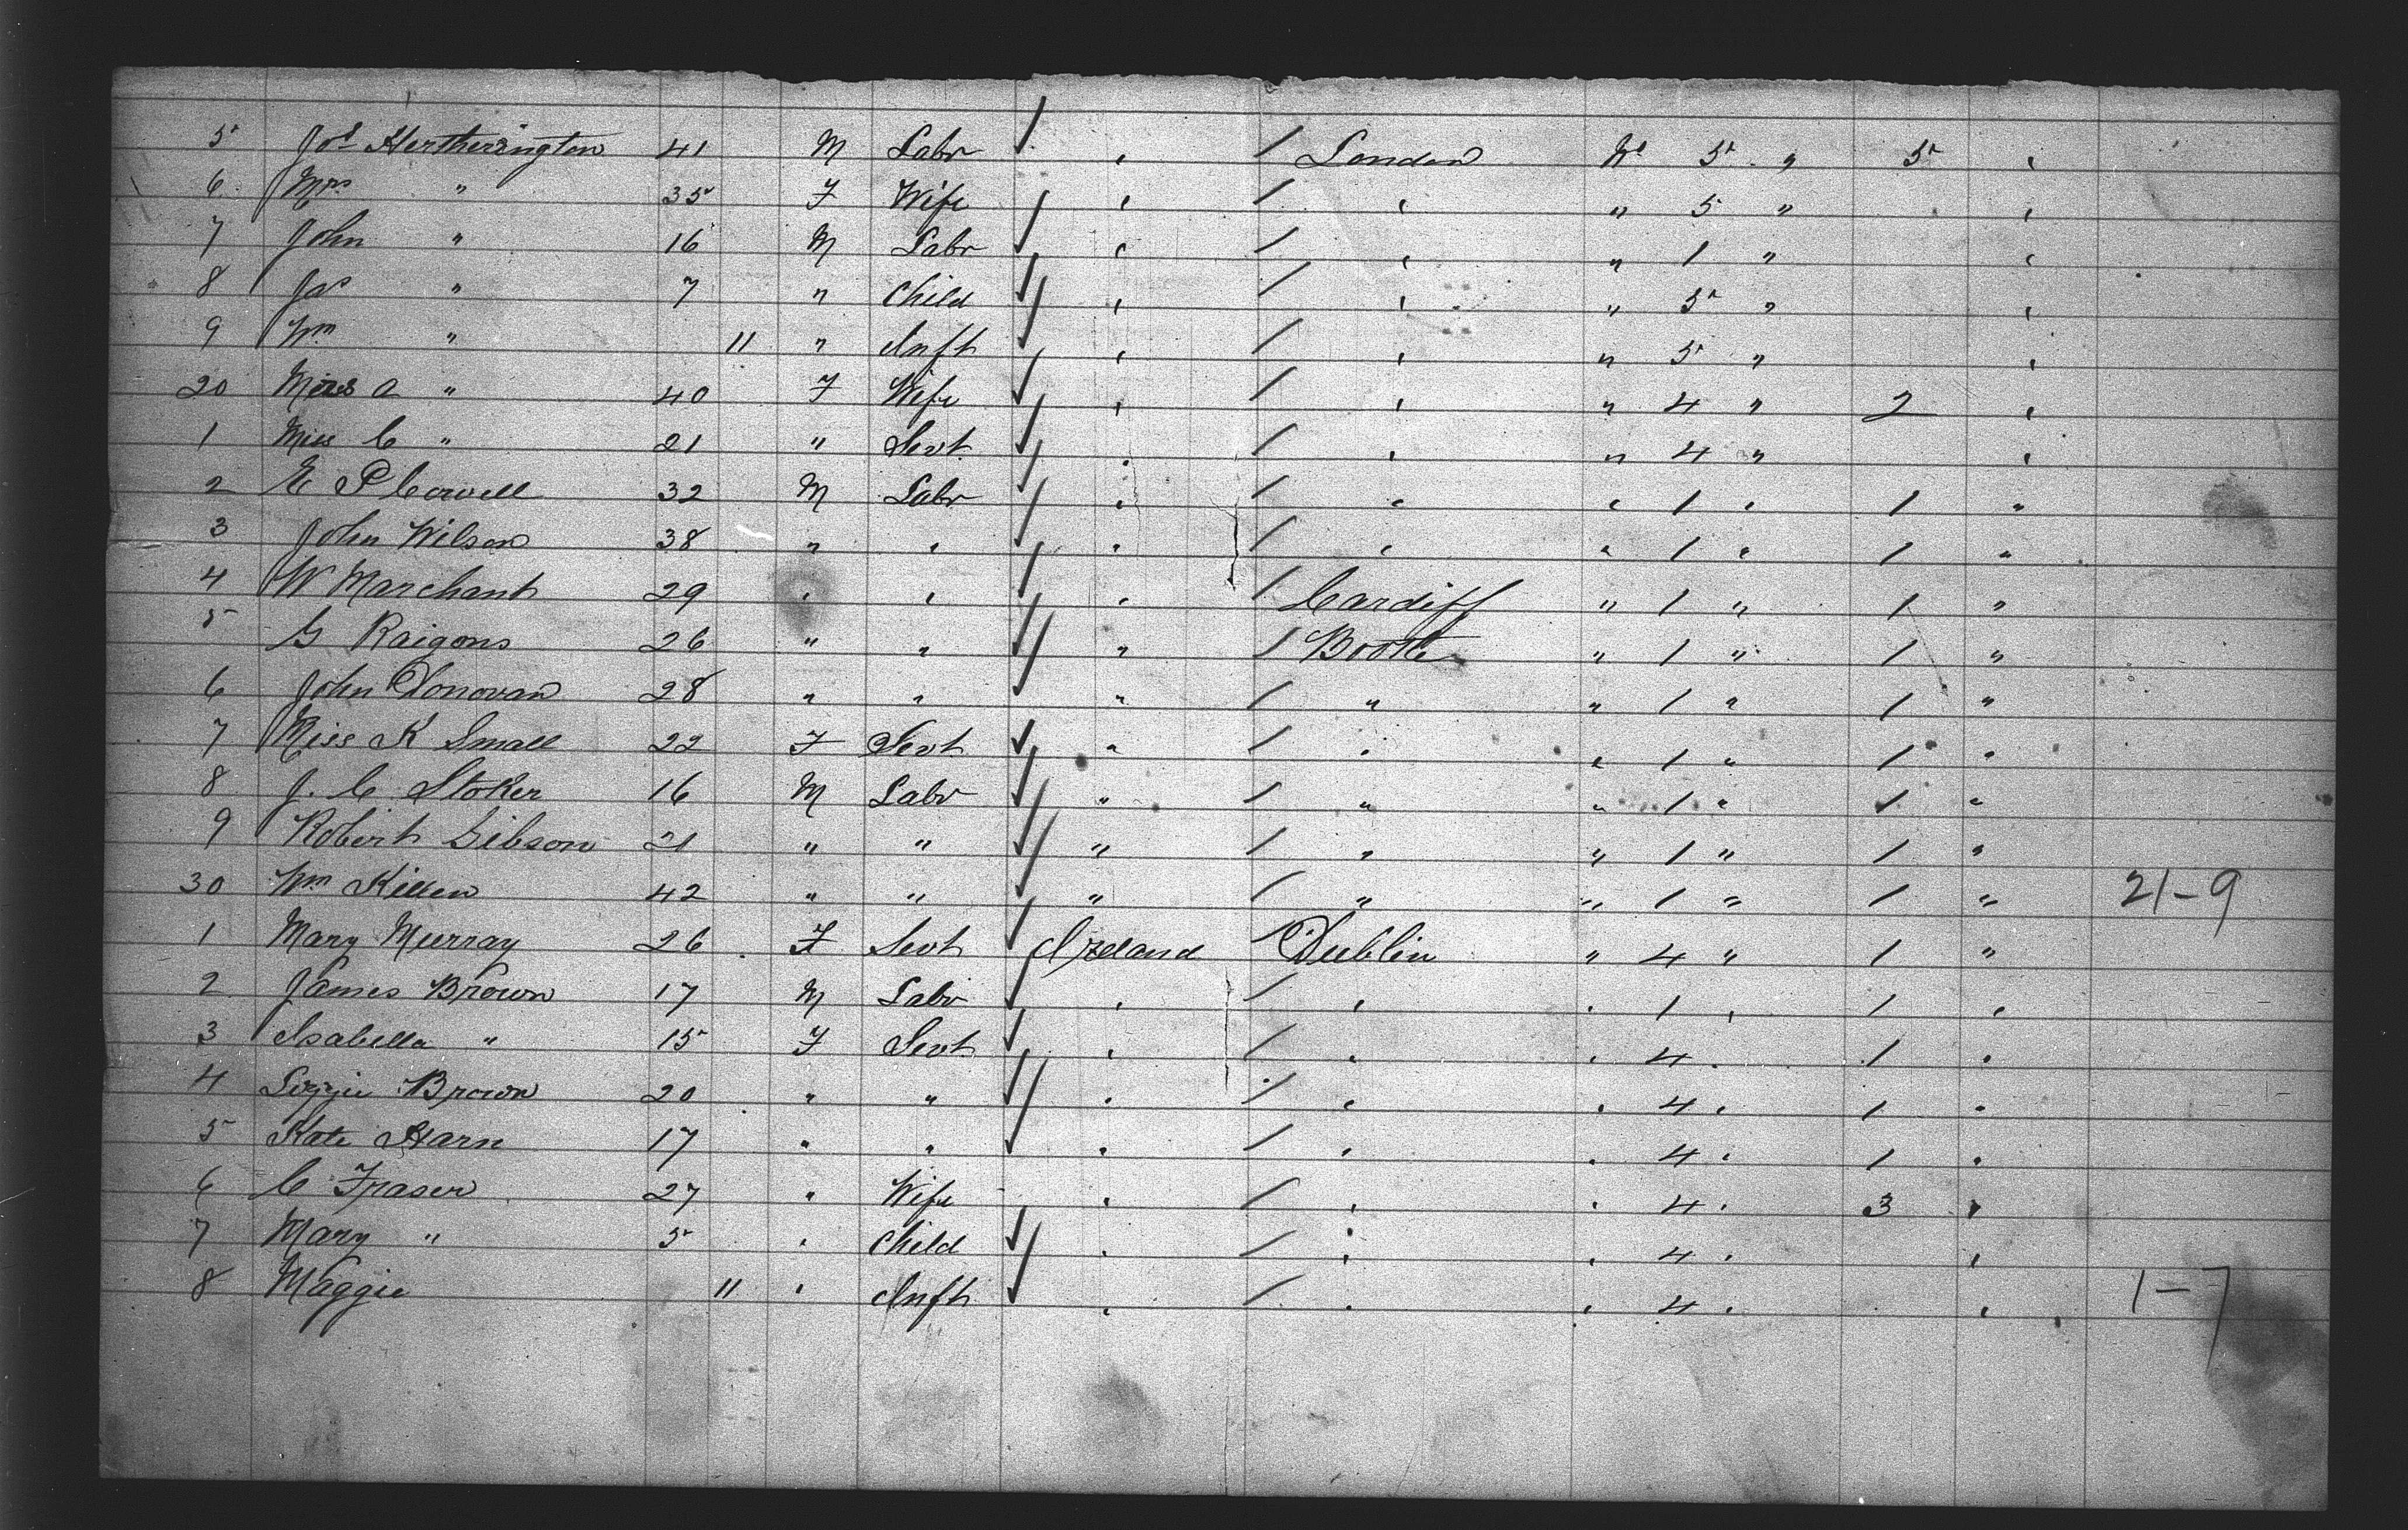 5 Jos Hertherington 41 M Labr ✓ , / London W 5 " 5 ,
6 Mrs " 35 F Wife , / , " 5 " ,
7 John " 16 M Labr ✓ , / , " 1 " ,
8 Jas " 7 " Child ✓ , / , " 5 " ,
9 Wm " 11 " Inft ✓ , / , " 5 " ,
20 A " 40 F Wife ✓ , / , " 4 " 2 ,
1 Miss C " 21 " Sevt ✓ , / , " 4 " ,
2 E P Cowell 32 M Labr ✓ , / , , 1 , 1 "
3 John Wilson 38 " , ✓ " / , " 1 , 1 "
4 W Marchant 29 , , ✓ , / Cardiff " 1 " 1 "
5 G Raigons 26 " " ✓ " / Bootle " 1 " 1 "
6 John Donovan 28 " " ✓ " / " " 1 " 1 "
7 Miss K Small 22 F Sevt ✓ " / . , 1 " 1 "
8 J. C Stoker 16 M Labr ✓ " / " " 1 " 1 "
9 Robert Gibson 21 " " ✓ " / " " 1 " 1 "
30 Wm Killen 42 " " ✓ " / " " 1 " 1 " 21-9
1 Mary Murray 26 F Sevt ✓ Ireland / Dublin " 4 " 1 "
2 James Brown 17 M Labr ✓ , / , . 1 , 1 ,
3 Isabella " 15 F Sevt ✓ , / , , 4 . 1 .
4 Lizzie Brown 20 " " ✓ , / , , 4 , 1 .
5 Kate 17 " " ✓ , / , . 4 . 1 .
6 C Fraser 27 " Wife , / , , 4 . 3 ,
7 Mary " 5 , Child ✓ , / , , 4 . ,
8 Maggie 11 , Inft ✓ , / . , 4 . , 1-7